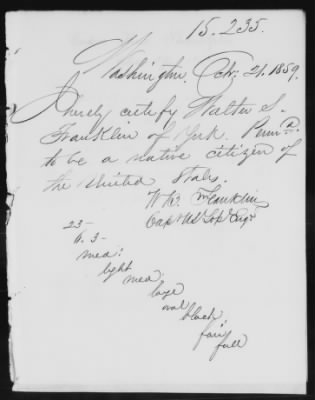 15.235.
Washington, Oct. 21. 1859.
I hereby certify Walter S.
Franklin of York. Penna.
to be a native citizen of
the United States.
Wm. Franklin,
Capt US. Top. Engr
23 -
6. 3 -
med:
light
med
large
oval
black.
fair
full